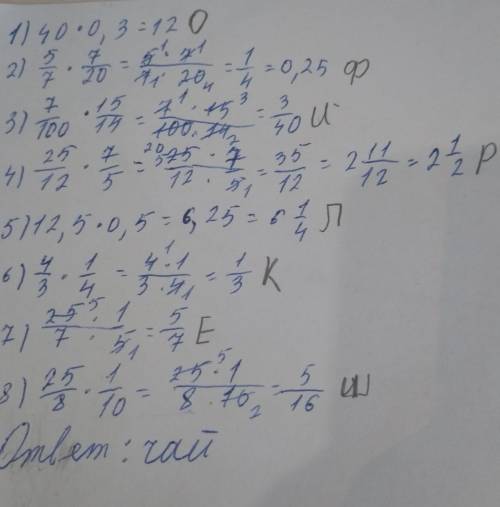 1) 40 · 0,3 = 12 О
2) 5/7 · 7/20 = 5¹ · 7¹ / 7₁ · 20₄ = 1/4 = 0,25 Ф
3) 7/100 · 15/14 = 7¹ · 15³ / 100 · 14₂ = 3/40 И
4) 25/12 · 7/5 = 25 · 7 / 12 · 5₁ = 35/12 = 2 11/12 = 2 1/2 Р
5) 12,5 · 0,5 = 6,25 = 6 1/4 Л
6) 4/3 · 1/4 = 4¹ · 1 / 3 · 4₁ = 1/3 К
7) 25⁵ · 1 / 7 · 5₁ = 5/7 Е
8) 25/8 · 1/10 = 25⁵ · 1 / 8 · 10₂ = 5/16 Ш
Ответ: чай